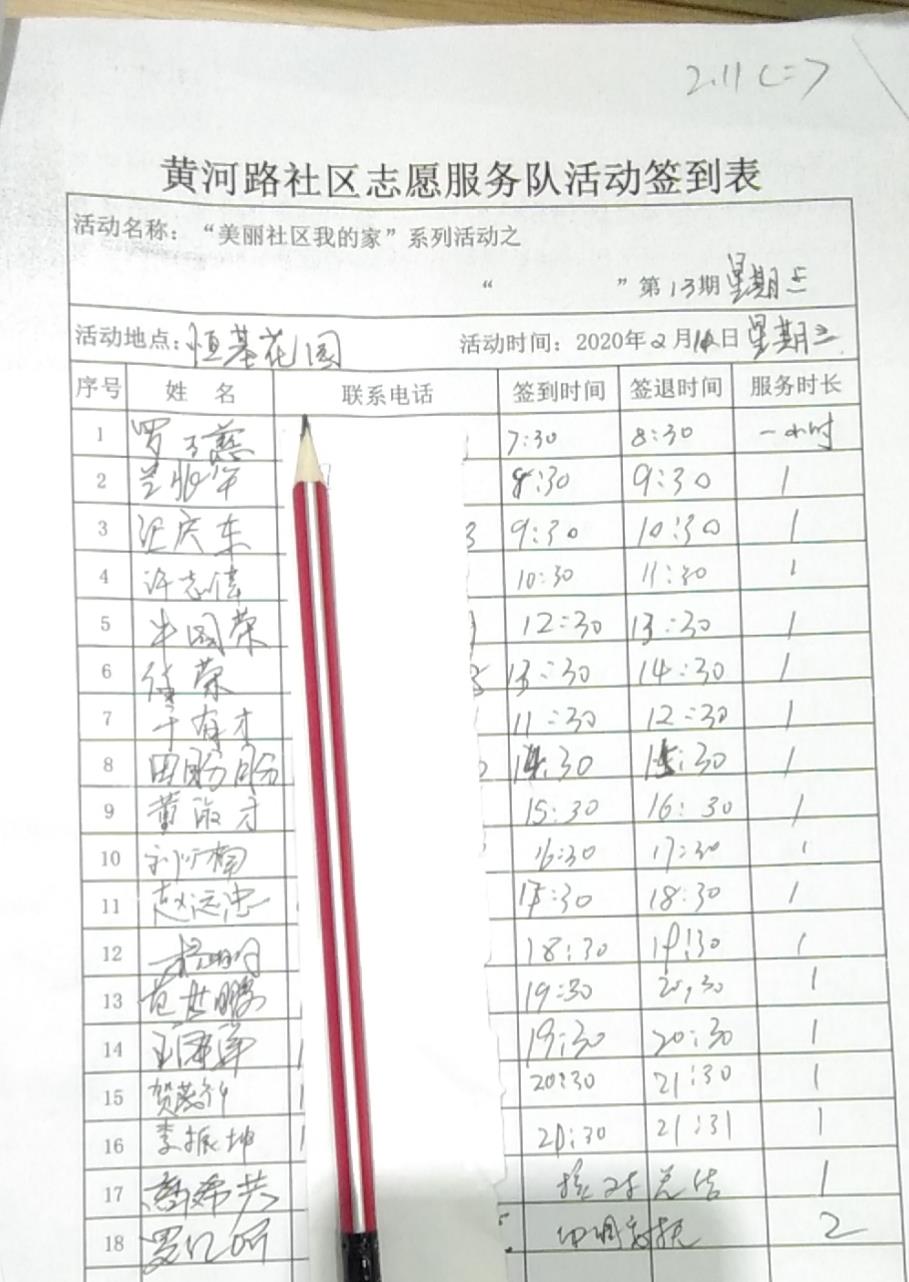 2.11
黄河路社区志愿服务队活动签到表
活动名称：“美丽社区我的家”系列活动之
“ ”第13期 星期三
活动地点：恒基花园 活动时间：2020年2月 日 星期三
序号 姓名 联系电话 签到时间 签退时间 服务时长
1 罗 7:30 8:30 一小时
2 8:30 9:30 1
3 庆东 3 9:30 10:30 1
4 许志伟 10:30 11:30 1
5 牛国荣 12:30 13:30 1
6 任荣 13:30 14:30 1
7 于有才 11:30 12:30 1
8 田盼盼 14:30 15:30 1
9 黄 才 15:30 16:30 1
10 刘 楠 16:30 17:30 1
11 赵运忠 17:30 18:30 1
12 杨明 18:30 19:30 1
13 范世鹏 19:30 20:30 1
14 王泽军 19:30 20:30 1
15 贺 20:30 21:30 1
16 李振坤 20:30 21:31 1
17 希 1
18 罗 2